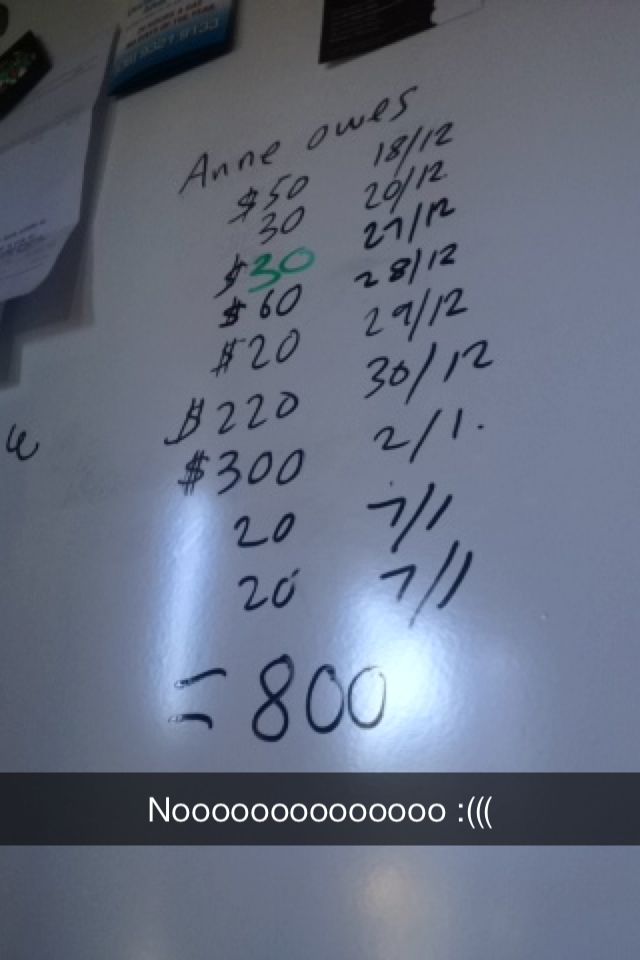 Anne owes
$50 18/12
30 20/12
$30 27/12
$60 28/12
$20 29/12
$220 30/12
$300 2/1.
20 7/1
20 7/1
= 800
Noooooooooooooo :(((